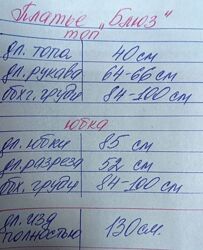 Платье „Блюз"
топ
дл. топа 40 см
дл. рукава 64-66 см
обх. груди 84-100 см
юбка
дл. юбки 85 см
дл. разреза 52 см
обх. груди 84-100 см
дл. изд. 130 см.
полностью